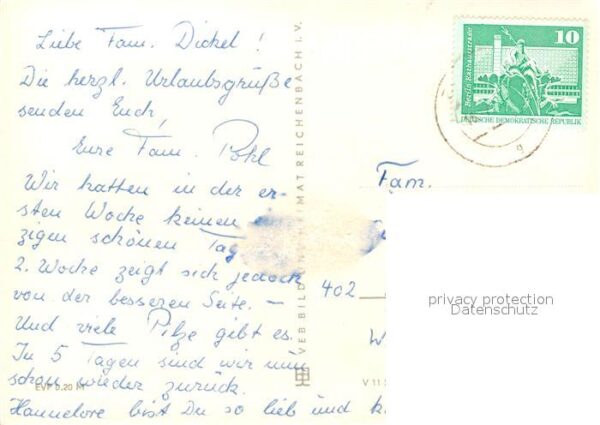 Liebe Fam. Dickel!
Die herzl. Urlaubsgrüße
senden Euch,
Eure Fam. Pohl
Wir hatten in der er-
sten Woche keinen
zigen schönen Tag
2. Woche zeigt sich jedoch
von der besseren Seite. —
Und viele Pilze gibt es.
In 5 Tagen sind wir nun
schon wieder zurück.
Hannelore bist Du so lieb und k
EVP 0,20 M
VEB BILD HEIMAT REICHENBACH I. V.
V 11 5
10
Berlin, Rathausstraße
DEUTSCHE DEMOKRATISCHE REPUBLIK
Fam.
402
W
privacy protection
Datenschutz